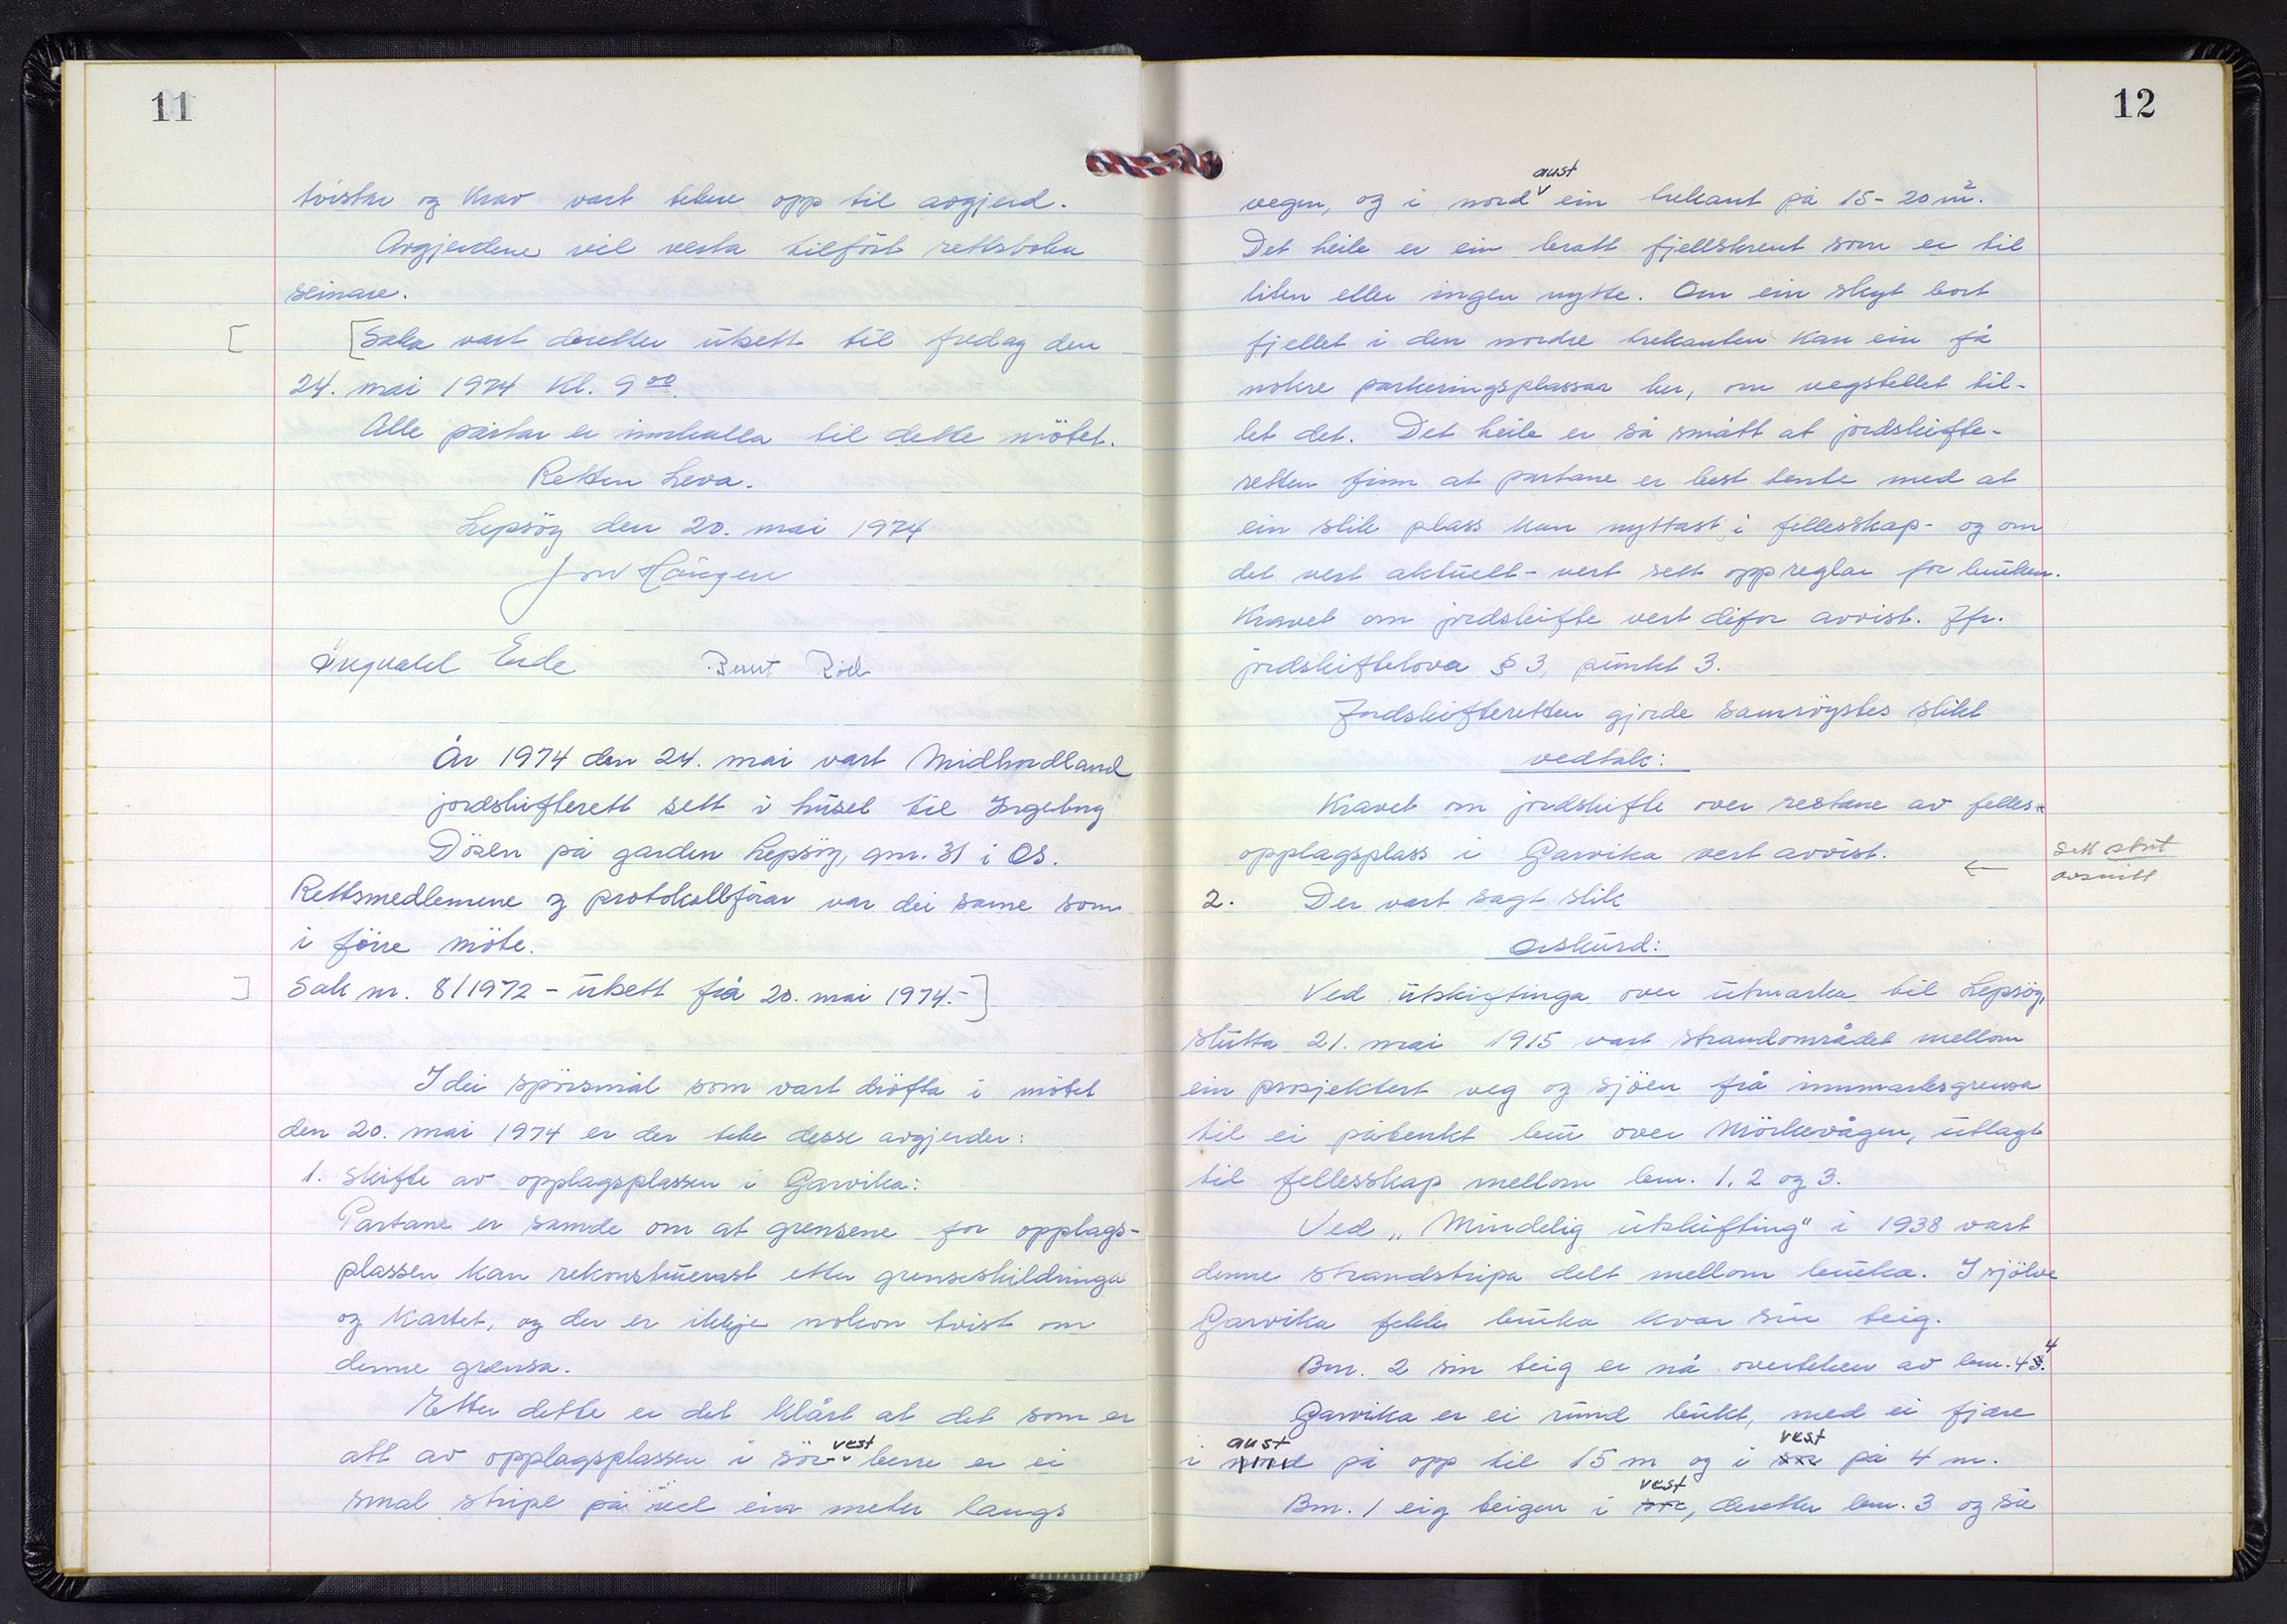 11
tvistar og krav vart tekne opp til avgjerd.
Avgjerdene vil verta tilført rettsboka
seinare.
[Saka vart deretter utsett til fredag den
24. mai 1974 kl. 9 00.
Alle partar er innkalla til dette møtet.
Retten heva.
Lepsøy den 20. mai 1974
Jon Haugen
Ingvald Eide Bernt Röe
År 1974 den 24. mai vart Midhordland
jordskifterett sett i huset til Ingeborg
Døsen på garden Lepsøy, gnr. 31 i Os.
Rettsmedlemene og protokollførar var dei same som
i førre møte.
Sak nr. 8/1972 - utsett frå 20. mai 1974.-]
I dei spørsmål som vart drøfta i møtet
den 20. mai 1974 er der teke desse avgjerder:
1. Skifte av opplagsplassen i Garvika:
Partane er samde om at grensene for opplags-
plassen kan rekonstruerast etter grenseskildringa
og kartet, og der er ikkje nokon tvist om
denne grensa.
Etter dette er det klårt at det som er
att av opplagsplassen i sør-vest berre er ei
smal stripe på vel ein meter langs
12
vegen, og i nordaust ein trekant på 15-20 m².
Det heile er ein bratt fjellskrent som er til
liten eller ingen nytte. Om ein skyt bort
fjellet i den nordre trekanten kan ein få
nokre parkeringsplassar her, om vegstellet til-
let det. Det heile er så smått at jordskifte-
retten finn at partane er best tente med at
ein slik plass kan nyttast i fellesskap - og om
det vert aktuelt - vert sett opp reglar for bruken.
Kravet om jordskifte vert difor avvist. Jfr.
jordskiftelova § 3, punkt 3.
Jordskifteretten gjorde samrøystes slikt
vedtak:
Kravet om jordskifte over restane av felles-
opplagsplass i Garvika vert avvist.
← Sett
avsnitt
2. Der vart sagt slik
orskurd:
Ved utskiftinga over utmarka til Lepsøy,
slutta 21. mai 1915 vart strandområdet mellom
ein prosjektert veg og sjøen frå innmarksgrensa
til ei påtenkt bru over Mørkevågen, utlagt
til fellesskap mellom bnr. 1, 2 og 3.
Ved „Mindelig utskifting" i 1938 vart
denne strandstripa delt mellom bruka. I sjølve
Garvika fekk bruka kvar sin teig.
Bnr. 2 sin teig er nå overteken av bnr. 44.
Garvika er ei rund bukt, med ei fjære
i aust på opp til 15 m og i vest på 4 m.
Bnr. 1 eig teigen i vest, deretter bnr. 3 og så